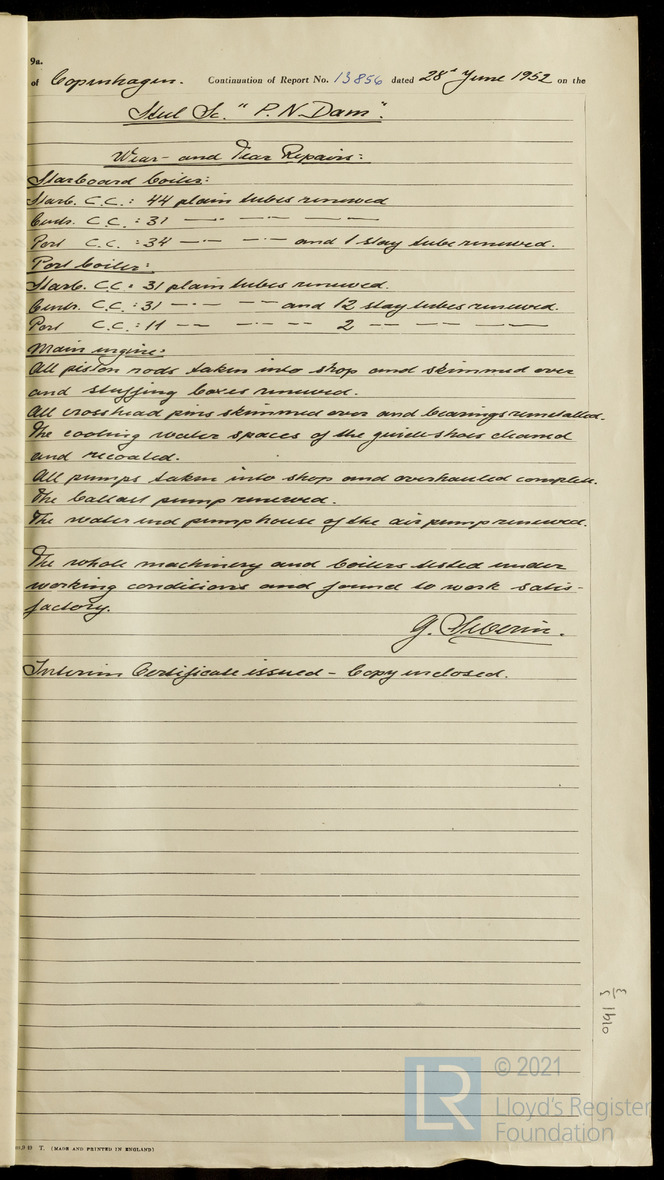 9a.
of Copenhagen. Continuation of Report No. 13856 dated 28th June 1952 on the
Steel Sc. "P. N. Dam".
Wear- and Tear Repairs:
Starboard boiler:
Starb. C.C.: 44 plain tubes renewed
Centr. C.C.: 31 —·— —·— — —
Port C.C.: 34 —·— —·— and 1 stay tube renewed.
Port boiler:
Starb. C.C.: 31 plain tubes renewed.
Centr. C.C.: 31 —·— — — and 12 stay tubes renewed.
Port C.C.: 11 — — —·— — 2 — — — — —
Main engine:
All piston rods taken into shop and skimmed over
and stuffing boxes renewed.
All crosshead pins skimmed over and bearings remetalled.
The cooling water spaces of the guide-shoes cleaned
and recoated.
All pumps taken into shop and overhauled complete.
The ballast pump renewed.
The water end pump house of the air pump renewed.
The whole machinery and boilers tested under
working conditions and found to work satis-
factory.
G.
Interim Certificate issued - Copy enclosed.
© 2021
LR
Lloyd's Register
Foundation
T. (MADE AND PRINTED IN ENGLAND)